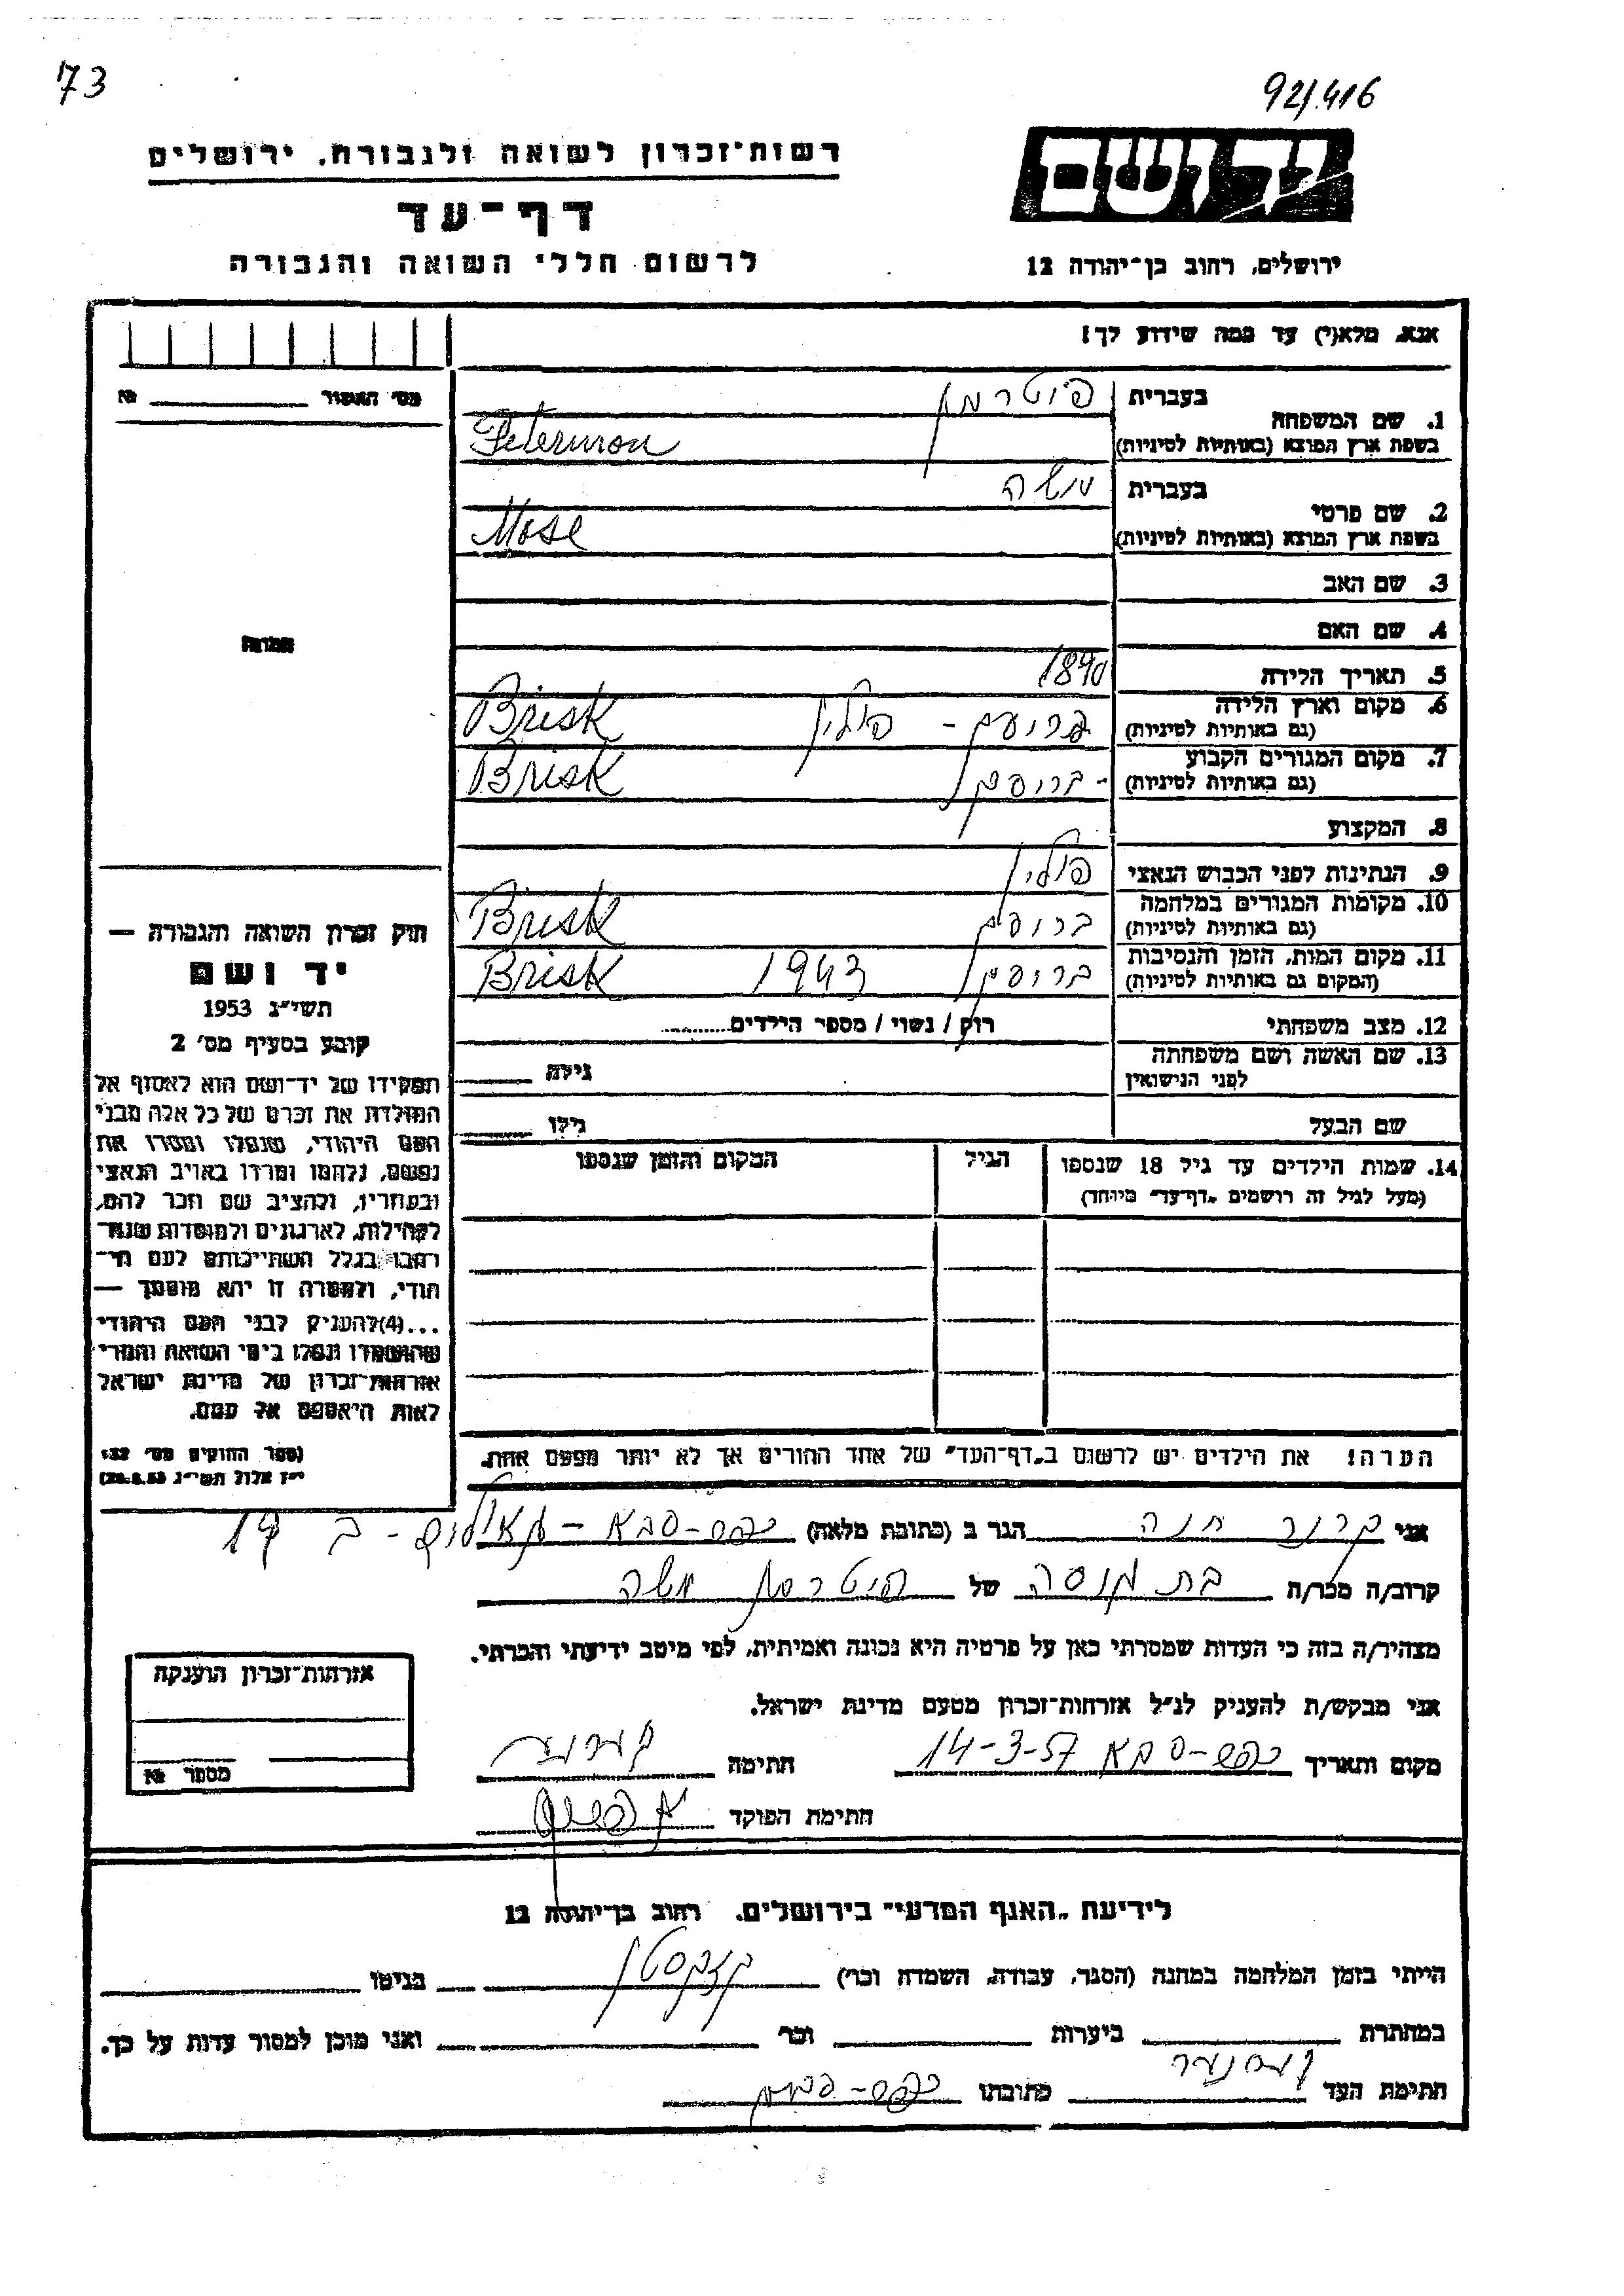 73
92/416
רשות־זכרון לשואה ולגבורה, ירושלים
יד ושם
דף־עד
לרשום חללי השואה והגבורה
ירושלים, רחוב בן־יהודה 12
אנא, מלא(י) עד כמה שידוע לך!
מס' האשור №
1. שם המשפחה
בעברית פיטרמן
בשפת ארץ המוצא (באותיות לטיניות) Feterman
2. שם פרטי
בעברית משה
בשפת ארץ המוצא (באותיות לטיניות) Mose
3. שם האב
4. שם האם
תמונה
5. תאריך הלידה 1890
6. מקום וארץ הלידה
(גם באותיות לטיניות) - פולין Brisk
7. מקום המגורים הקבוע
(גם באותיות לטיניות) Brisk
8. המקצוע
9. הנתינות לפני הכבוש הנאצי פולין
10. מקומות המגורים במלחמה
(גם באותיות לטיניות) Brisk
11. מקום המות, הזמן והנסיבות
(המקום גם באותיות לטיניות) 1943 Brisk
12. מצב משפחתי רוק / נשוי / מספר הילדים
13. שם האשה ושם משפחתה
לפני הנישואין גילה
שם הבעל גילו
14. שמות הילדים עד גיל 18 שנספו
(מעל לגיל זה רושמים „דף־עד" מיוחד)
הגיל
המקום והזמן שנספו
הערה! את הילדים יש לרשום ב„דף־העד" של אחד ההורים אך לא יותר מפעם אחת.
חוק זכרון השואה והגבורה —
יד ושם
תשי"ג 1953
קובע בסעיף מס' 2
תפקידו של יד־ושם הוא לאסוף אל
המולדת את זכרם של כל אלה מבני
העם היהודי, שנפלו ומסרו את
נפשם, נלחמו ומרדו באויב הנאצי
ובעוזריו, ולהציב שם וזכר להם,
לקהילות, לארגונים ולמוסדות שנח־
רבו בגלל השתייכותם לעם הי־
הודי, ולמטרה זו יהא מוסמך —
...(4)להעניק לבני העם היהודי
שהושמדו ונפלו בימי השואה והמרי
אזרחות־זכרון של מדינת ישראל
לאות היאספם אל עמם.
(ספר החוקים מס' 132
י"ז אלול תשי"ג 28.8.53)
אני חנה הגר ב (כתובת מלאה) כפר-סבא - ב 14
קרוב/ה מכר/ה של פיטרמן משה
מצהיר/ה בזה כי העדות שמסרתי כאן על פרטיה היא נכונה ואמיתית, לפי מיטב ידיעתי והכרתי.
אני מבקש/ת להעניק לנ"ל אזרחות־זכרון מטעם מדינת ישראל.
מקום ותאריך כפר-סבא 14-3-57 חתימה
חתימת הפוקד
אזרחות־זכרון הוענקה
מספר №
לידיעת „האגף המדעי" בירושלים, רחוב בן־יהודה 12
הייתי בזמן המלחמה במחנה (הסגר, עבודה, השמדה וכו') בגיטו
במחתרת ביערות וכו' ואני מוכן למסור עדות על כך.
חתימת העד כתובתו